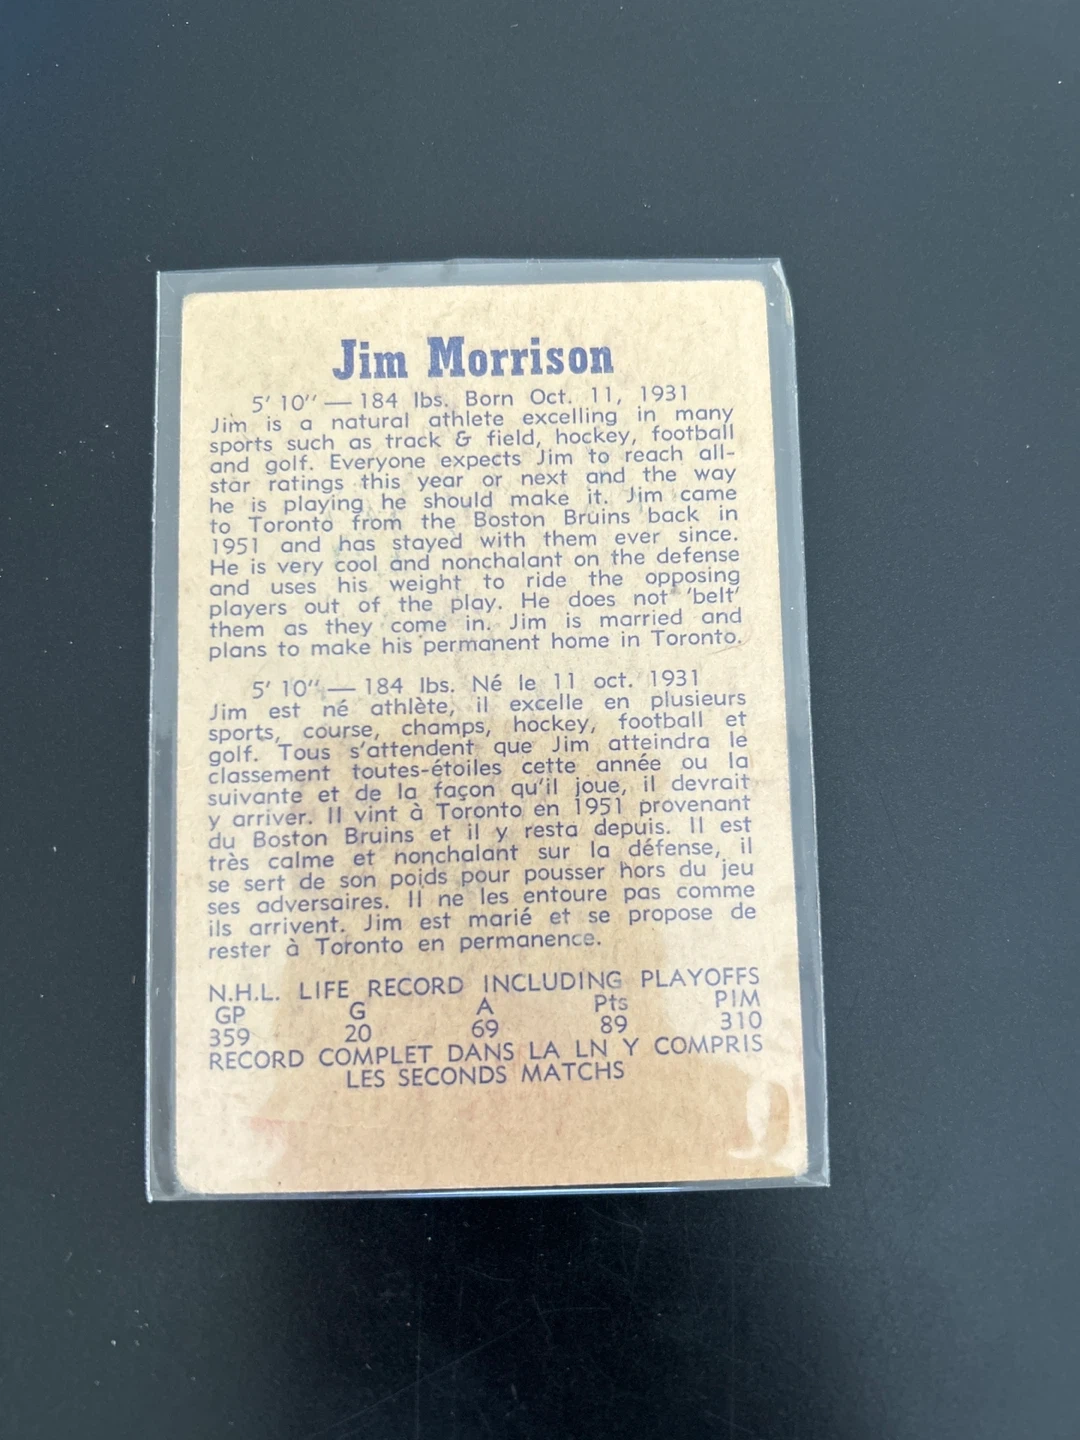 Jim Morrison
5' 10" — 184 lbs. Born Oct. 11, 1931
Jim is a natural athlete excelling in many
sports such as track & field, hockey, football
and golf. Everyone expects Jim to reach all-
star ratings this year or next and the way
he is playing he should make it. Jim came
to Toronto from the Boston Bruins back in
1951 and has stayed with them ever since.
He is very cool and nonchalant on the defense
and uses his weight to ride the opposing
players out of the play. He does not 'belt'
them as they come in. Jim is married and
plans to make his permanent home in Toronto.
5' 10" — 184 lbs. Né le 11 oct. 1931
Jim est né athlète, il excelle en plusieurs
sports, course, champs, hockey, football et
golf. Tous s'attendent que Jim atteindra le
classement toutes-étoiles cette année ou la
suivante et de la façon qu'il joue, il devrait
y arriver. Il vint à Toronto en 1951 provenant
du Boston Bruins et il y resta depuis. Il est
très calme et nonchalant sur la défense, il
se sert de son poids pour pousser hors du jeu
ses adversaires. Il ne les entoure pas comme
ils arrivent. Jim est marié et se propose de
rester à Toronto en permanence.
N.H.L. LIFE RECORD INCLUDING PLAYOFFS
GP G A Pts PIM
359 20 69 89 310
RECORD COMPLET DANS LA LN Y COMPRIS
LES SECONDS MATCHS